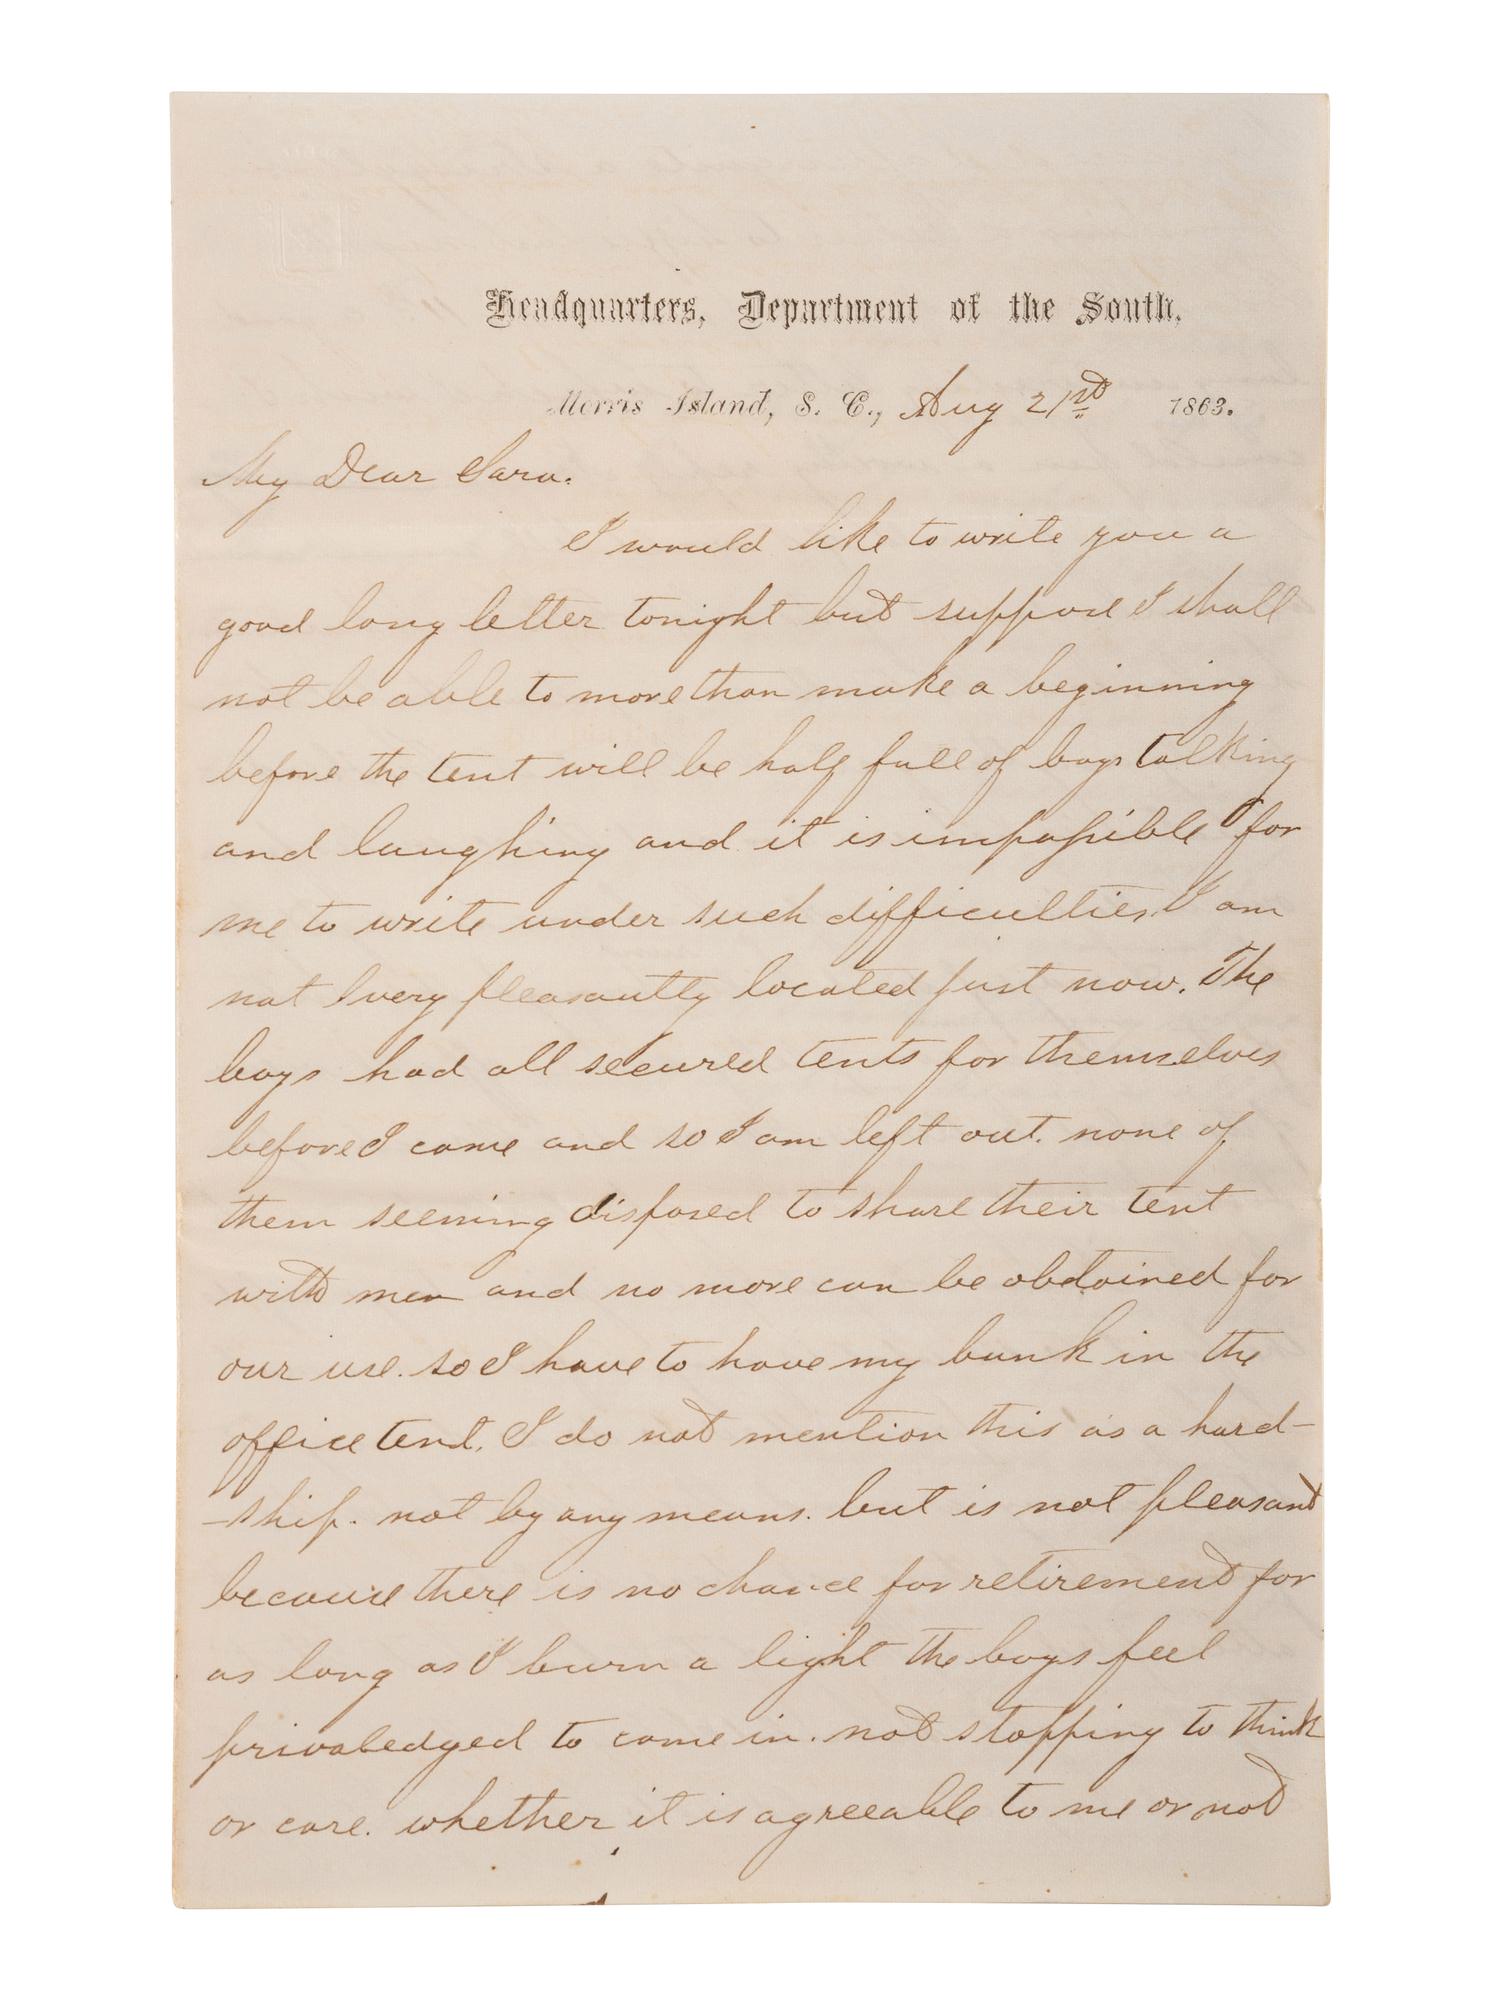 Headquarters, Department of the South,
Morris Island, S. C., Aug 21st 1863.
My Dear Sara.
I would like to write you a
good long letter tonight but suppose I shall
not be able to more than make a beginning
before the tent will be half full of boys talking
and laughing and it is impossible for
me to write under such difficulties, I am
not very pleasantly located just now. The
boys had all secured tents for themselves
before I came and so I am left out. none of
them seeming disposed to share their tent
with men and no more can be obtained for
our use. so I have to have my bunk in the
office tent. I do not mention this as a hard-
-ship. not by any means. but is not pleasant
because there is no chance for retirement for
as long as I burn a light the boys feel
privaledged to come in. not stopping to think
or care. whether it is agreeable to me or not